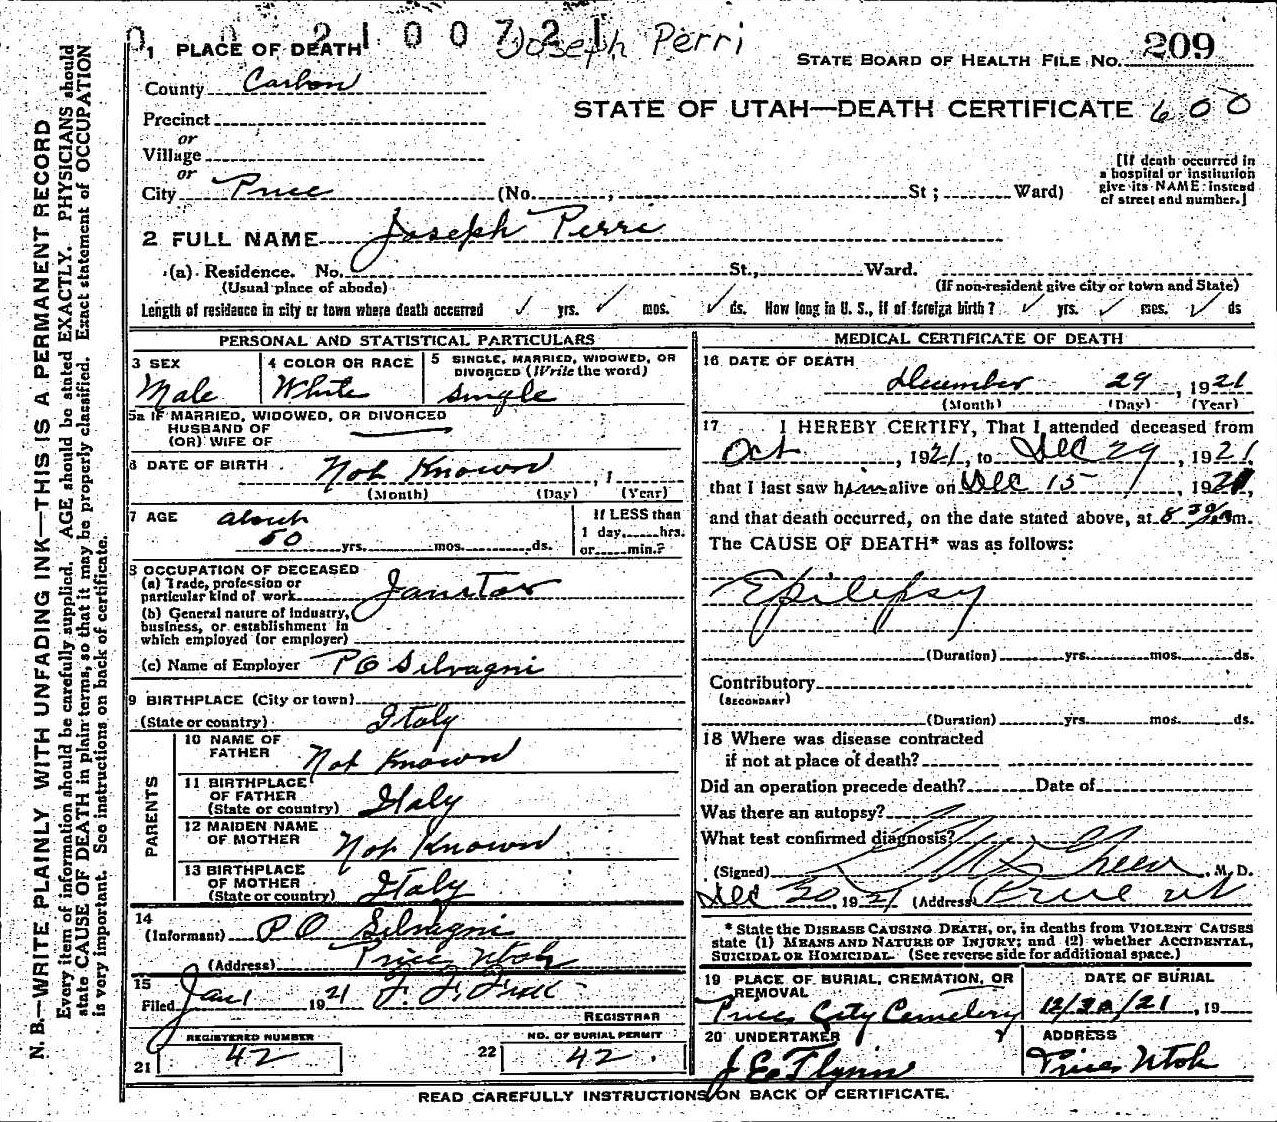 0 0 2 1 0 0 7 2 1 Joseph Perri
1 PLACE OF DEATH
STATE BOARD OF HEALTH FILE NO. 209
County Carbon
STATE OF UTAH—DEATH CERTIFICATE 600
Precinct
or
Village
or
City Price (No. , St ; Ward)
[If death occurred in
a hospital or institution
give its NAME instead
of street and number.]
2 FULL NAME Joseph Perri
(a) Residence. No. St., Ward.
(Usual place of abode) (If non-resident give city or town and State)
Length of residence in city or town where death occurred ✓ yrs. ✓ mos. ✓ ds. How long in U. S., if of foreign birth? ✓ yrs. ✓ mos. ✓ ds
PERSONAL AND STATISTICAL PARTICULARS
3 SEX Male
4 COLOR OR RACE White
5 SINGLE, MARRIED, WIDOWED, OR
DIVORCED (Write the word)
single
5a IF MARRIED, WIDOWED, OR DIVORCED
HUSBAND OF
(OR) WIFE OF
6 DATE OF BIRTH Not Known , 1
(Month) (Day) (Year)
7 AGE about
50 yrs. mos. ds.
If LESS than
1 day, hrs.
or min.?
8 OCCUPATION OF DECEASED
(a) Trade, profession or
particular kind of work Janitor
(b) General nature of industry,
business, or establishment in
which employed (or employer)
(c) Name of Employer P O Silvagni
9 BIRTHPLACE (City or town)
(State or country) Italy
PARENTS
10 NAME OF
FATHER Not Known
11 BIRTHPLACE
OF FATHER
(State or country) Italy
12 MAIDEN NAME
OF MOTHER Not Known
13 BIRTHPLACE
OF MOTHER
(State or country) Italy
14
(Informant) P O Silvagni
(Address) Price Utah
15
Filed Jan 1 1921
REGISTRAR
REGISTERED NUMBER
21 42
NO. OF BURIAL PERMIT
22 42
MEDICAL CERTIFICATE OF DEATH
16 DATE OF DEATH
December 29, 1921
(Month) (Day) (Year)
17 I HEREBY CERTIFY, That I attended deceased from
Oct , 1921, to Dec 29, 1921,
that I last saw him alive on Dec 15, 1921,
and that death occurred, on the date stated above, at 8 30 m.
The CAUSE OF DEATH* was as follows:
Epilepsy
(Duration) yrs. mos. ds.
Contributory
(SECONDARY)
(Duration) yrs. mos. ds.
18 Where was disease contracted
if not at place of death?
Did an operation precede death? Date of
Was there an autopsy?
What test confirmed diagnosis?
(Signed) , M. D.
Dec 30, 1921 (Address) Price Ut
* State the DISEASE CAUSING DEATH, or, in deaths from VIOLENT CAUSES
state (1) MEANS AND NATURE OF INJURY; and (2) whether ACCIDENTAL,
SUICIDAL OR HOMICIDAL. (See reverse side for additional space.)
19 PLACE OF BURIAL, CREMATION, OR
REMOVAL
Price City Cemetery
DATE OF BURIAL
12/30/21, 19
20 UNDERTAKER
J E Flynn
ADDRESS
Price Utah
READ CAREFULLY INSTRUCTIONS ON BACK OF CERTIFICATE.
N. B.—WRITE PLAINLY WITH UNFADING INK—THIS IS A PERMANENT RECORD
Every item of information should be carefully supplied. AGE should be stated EXACTLY. PHYSICIANS should
state CAUSE OF DEATH in plain terms, so that it may be properly classified. Exact statement of OCCUPATION
is very important. See instructions on back of certificate.